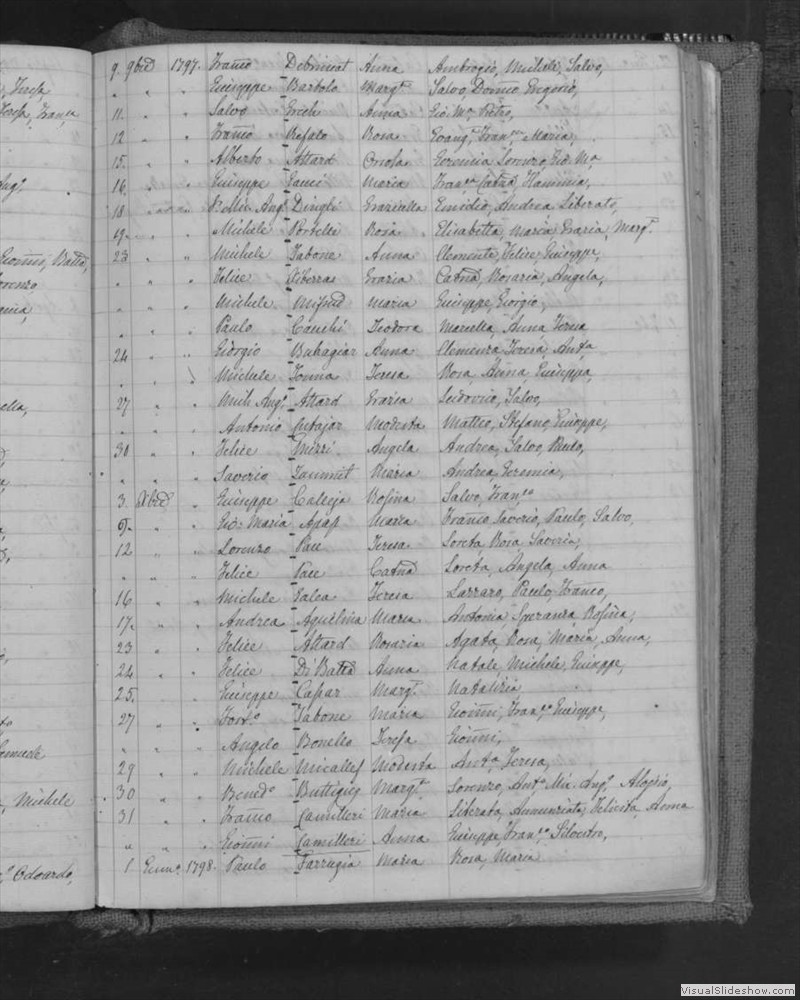 9. 9bre 1797. Franco Debrincat Anna Ambrogio, Michele, Salvo,
" " " Giuseppe Bartolo Margta Salvo Domco Grigorio,
11. " " Salvo Grech Anna Gio: Ma Pietro,
12 " " Franco Refalo Rosa Evangta, Franca Maria,
15. " " Alberto Attard Orsola Geremia Lorenzo Gio: Ma
16. " " Giuseppe Maria Franca Catna, Flaminia,
18 " " Mich: Ango Dingli Graziella Emidio, Andrea Liberato,
19. " " Michele Portelli Rosa Elisabetta, Maria Grazia, Margta
23 " " Michele Tabone Anna Clemente, Felice, Giuseppe,
" " " Felice Liberras Grazia Catna, Rosaria, Angela,
" " " Michele Mifsud Maria Giuseppe, Giorgio,
" " " Paulo Cauchi Teodora Marella, Anna Teresa
24 " " Giorgio Buhagiar Anna Clemenza Teresa, Anta
" " " Michele Tonna Teresa Rosa, Anna, Giuseppa,
27 " " Mich: Ango Attard Grazia Ludovico, Salvo,
" " " Antonio Mtajar Modesta Matteo, Stefano, Giuseppe,
30 " " Felice Mizzi Angela Andrea, Salvo, Paulo,
" " " Saverio Zammit Maria Andrea Geremia,
3. Xbre " Giuseppe Calleja Rosina Salvo, Franco
9. " " Gio: Maria Agap Maria Franco Saverio, Paulo, Salvo,
12 " " Lorenzo Pace Teresa Loreta Rosa Saveria,
" " " Felice Pace Catna Loreta, Angela, Anna
16 " " Michele Galea Teresa Lazzaro, Paulo, Franco,
17. " " Andrea Aquilina Maria Antonia, Speranza, Rosina,
23 " " Felice Attard Rosaria Agata, Rosa, Maria, Anna,
24 " " Felice Di Batta Anna Natale, Michele, Giuseppe,
25. " " Giuseppe Caspar Margta Natalizia
27 " " Forto Tabone Maria Gionni, Franco Giuseppe,
" " " Angelo Bonello Teresa Gionni,
29 " " Michele Micallef Modesta Anta Teresa,
30 " " Benedo Buttigieg Margta Lorenzo, Anto Mic: Ango Aloysio,
31 " " Franco Camilleri Maria Liberata, Annunziata, Felicita, Anna
" " " Gionni Camilleri Anna Giuseppe, Franco Silvestro,
1 Genno 1798. Paulo Farrugia Maria Rosa, Maria
VisualSlideshow.com